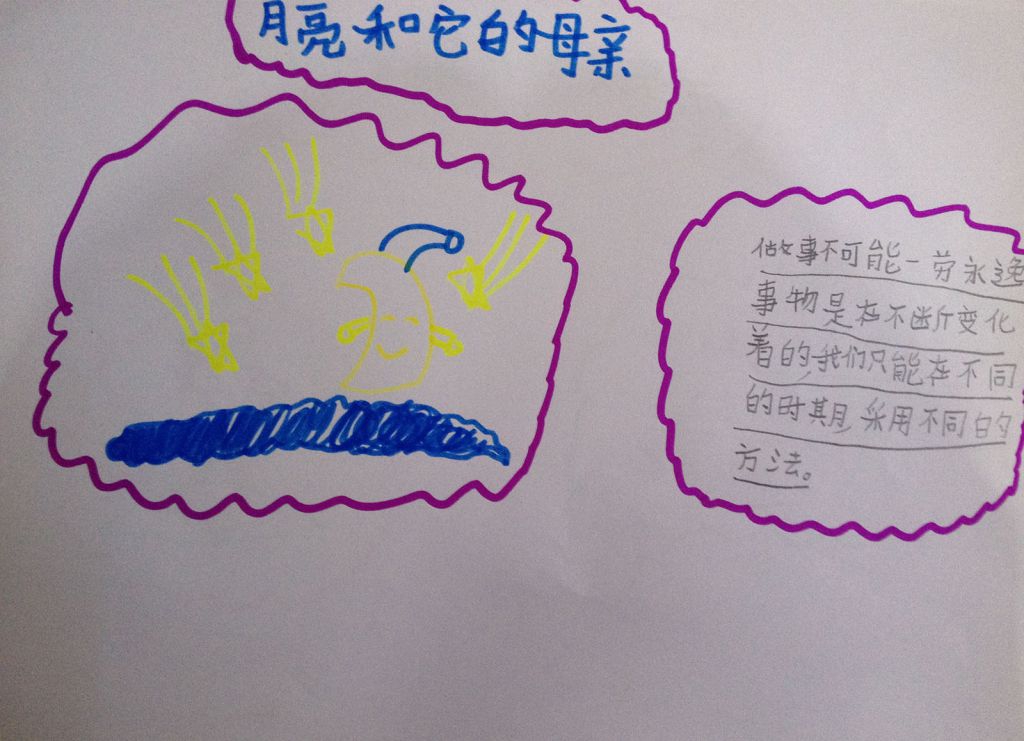 月亮和它的母亲
做事不可能一劳永逸
事物是在不断变化
着的,我们只能在不同
的时期,采用不同的
方法。